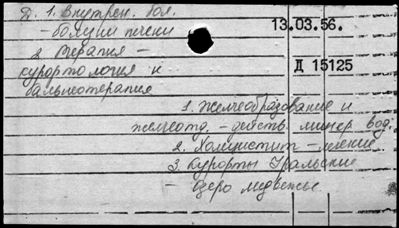 Д. 1. Внутрен. бол.
- болезни печени
13.03.56.
2. Терапия -
курортология и
Д 15125
бальнеотерапия
1. Желчеобразование и
желчеотд. - действ. минер. вод.
2. Холецистит - лечение
3. Курорты Уральские
- озеро Медвежье